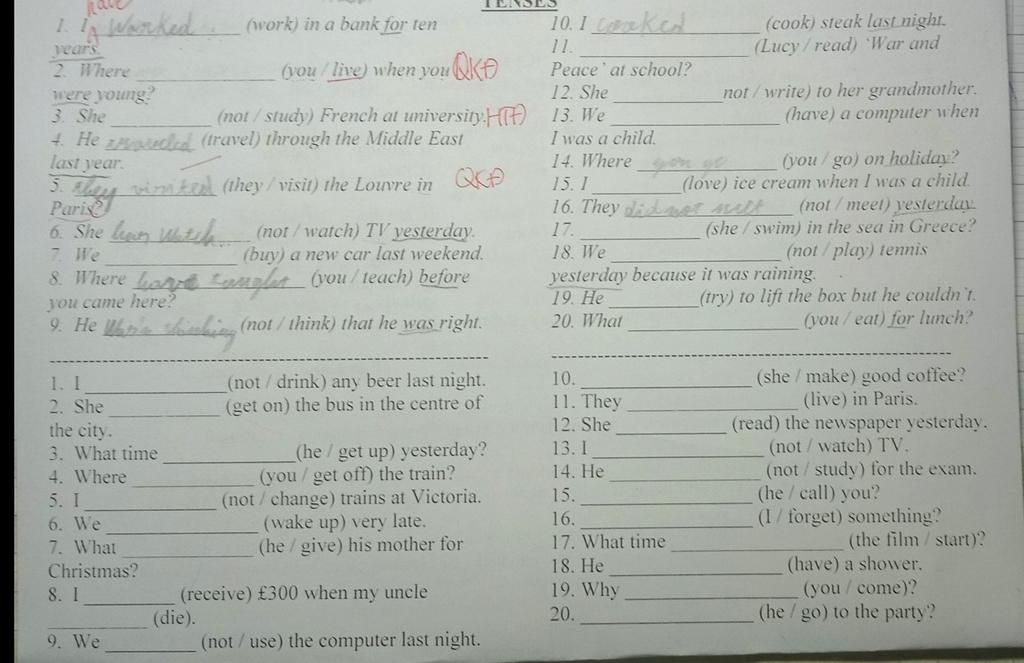 TENSES
have
1. I worked (work) in a bank for ten
years.
2. Where ____________ (you / live) when you QKĐ
were young?
3. She ____________ (not / study) French at university. HTĐ
4. He (travel) through the Middle East
last year.
5. they visited (they / visit) the Louvre in QKĐ
Paris?
6. She watch (not / watch) TV yesterday.
7. We ____________ (buy) a new car last weekend.
8. Where have (you / teach) before
you came here?
9. He (not / think) that he was right.
1. I ____________ (not / drink) any beer last night.
2. She ____________ (get on) the bus in the centre of
the city.
3. What time ____________ (he / get up) yesterday?
4. Where ____________ (you / get off) the train?
5. I ____________ (not / change) trains at Victoria.
6. We ____________ (wake up) very late.
7. What ____________ (he / give) his mother for
Christmas?
8. I ____________ (receive) £300 when my uncle
____________ (die).
9. We ____________ (not / use) the computer last night.
10. I cooked (cook) steak last night.
11. ____________ (Lucy / read) 'War and
Peace' at school?
12. She ____________ not / write) to her grandmother.
13. We ____________ (have) a computer when
I was a child.
14. Where you go (you / go) on holiday?
15. I ____________ (love) ice cream when I was a child.
16. They did not (not / meet) yesterday.
17. ____________ (she / swim) in the sea in Greece?
18. We ____________ (not / play) tennis
yesterday because it was raining.
19. He ____________ (try) to lift the box but he couldn't.
20. What ____________ (you / eat) for lunch?
10. ____________ (she / make) good coffee?
11. They ____________ (live) in Paris.
12. She ____________ (read) the newspaper yesterday.
13. I ____________ (not / watch) TV.
14. He ____________ (not / study) for the exam.
15. ____________ (he / call) you?
16. ____________ (I / forget) something?
17. What time ____________ (the film / start)?
18. He ____________ (have) a shower.
19. Why ____________ (you / come)?
20. ____________ (he / go) to the party?